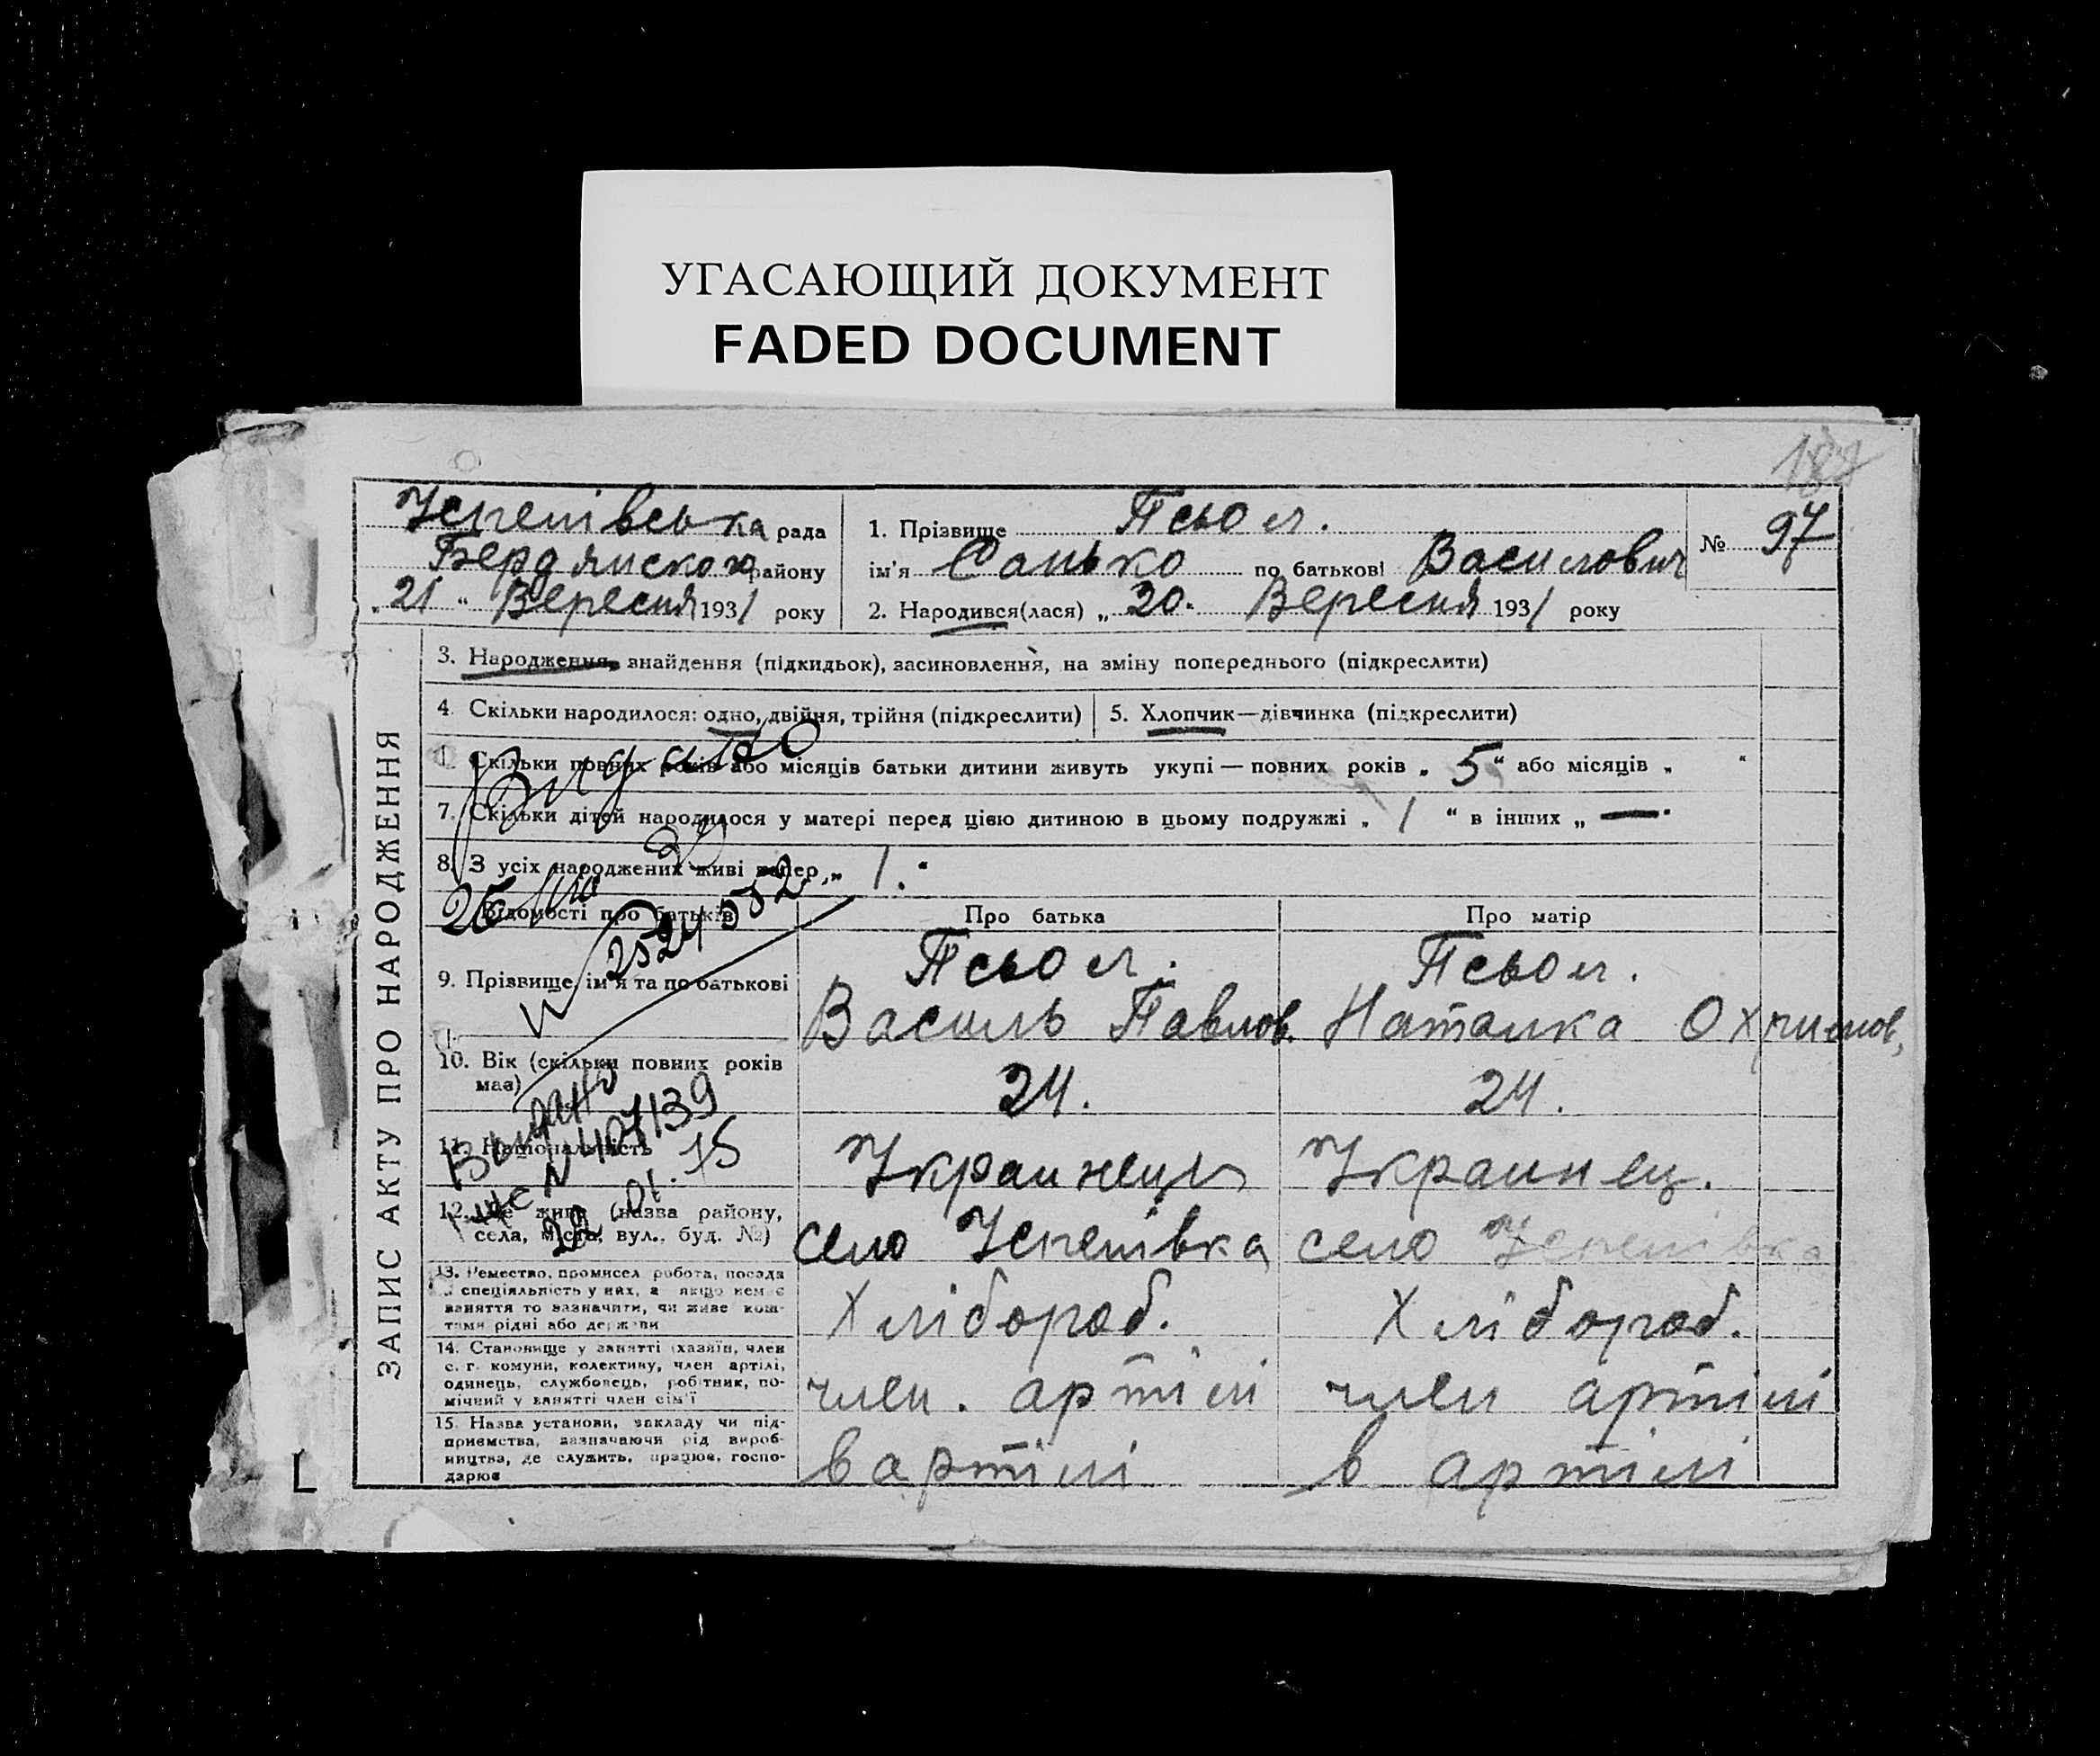 УГАСАЮЩИЙ ДОКУМЕНТ
FADED DOCUMENT
Успенівська рада
Бердянского району
„21“ Вересня 1931 року
1. Прізвище Псьол.
ім'я Санько по батькові Василович
2. Народився(лася) „20. Вересня 1931 року
№ 97
ЗАПИС АКТУ ПРО НАРОДЖЕННЯ
3. Народження, знайдення (підкидьок), засиновлення, на зміну попереднього (підкреслити)
4. Скільки народилося: одно, двійня, трійня (підкреслити)
5. Хлопчик—дівчинка (підкреслити)
Скільки повних років або місяців батьки дитини живуть укупі — повних років „ 5 “ або місяців „ “
7. Скільки дітей народилося у матері перед цією дитиною в цьому подружжі „ 1 “ в інших „ — “
8. З усіх народжених живі тепер „ 1. “
Відомості про батьків
Про батька
Про матір
9. Прізвище, ім'я та по батькові
Псьол.
Василь Павлов.
Псьол.
Наталка Охримов,
10. Вік (скільки повних років має)
24.
24.
11. Національність
Украинець
Украинец.
12. Де живе (назва району,
села, міста, вул., буд. №)
село Успенівка
село Успенівка
13. Ремество, промисел робота, посада
спеціяльність у них, а якщо немає
заняття то зазначити, чи живе кош-
тами рідні або держави
Хлібороб.
Хлібороб.
14. Становище у занятті (хазяїн, член
с.-г. комуни, колективу, член артілі,
одинець, службовець, робітник, по-
мічний у занятті член сім'ї
член. артілі
член артілі
15. Назва установи, закладу чи під-
приємства, зазначаючи рід вироб-
ництва, де служить, працює, госпо-
дарює
в артілі
в артілі
Выдано
N 407139
22.01.75